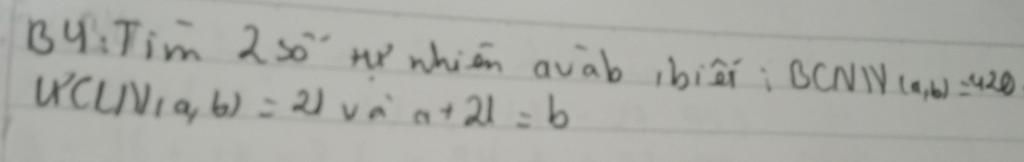 B4: Tìm 2 số tự nhiên a và b, biết: BCNN(a,b) = 420
ƯCLN(a, b) = 21 và a + 21 = b